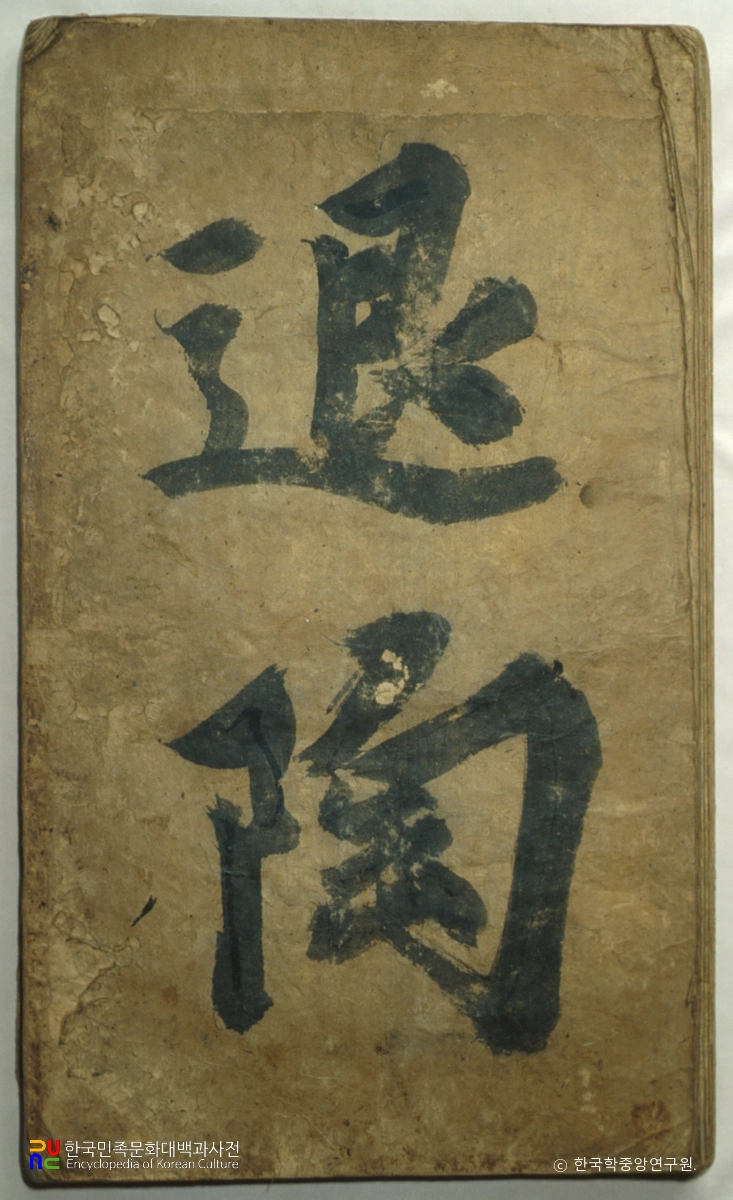 退
陶
한국민족문화대백과사전
Encyclopedia of Korean Culture
© 한국학중앙연구원.